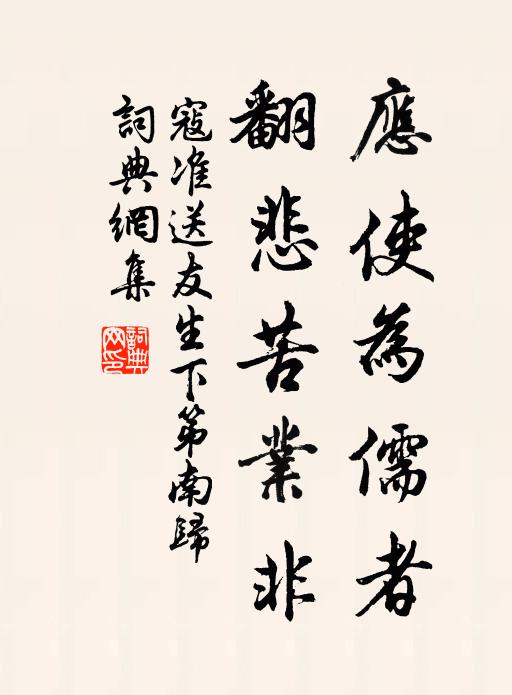 應使為儒者
翻悲苦業非
寇准送友生下第南歸
詞典網集
詞典
网印